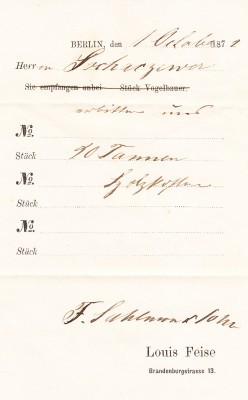 BERLIN, den 1 October 1872
Herrn
Sie empfangen anbei Stück Vogelbauer.
erbitten uns
No.
Stück 90 Tannen
No. Holzkosten
Stück
No.
Stück
F. Sahlmann & Sohn
Louis Feise
Brandenburgstrasse 13.